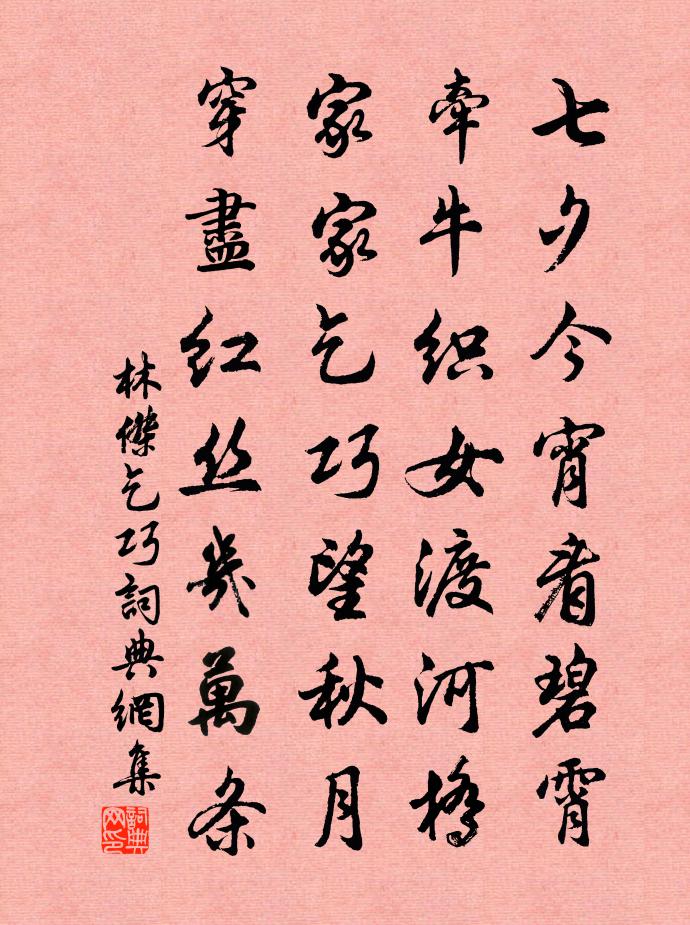 七夕今宵看碧霄
牽牛織女渡河橋
家家乞巧望秋月
穿盡红丝幾萬条
林傑乞巧詞典網集
詞典网印